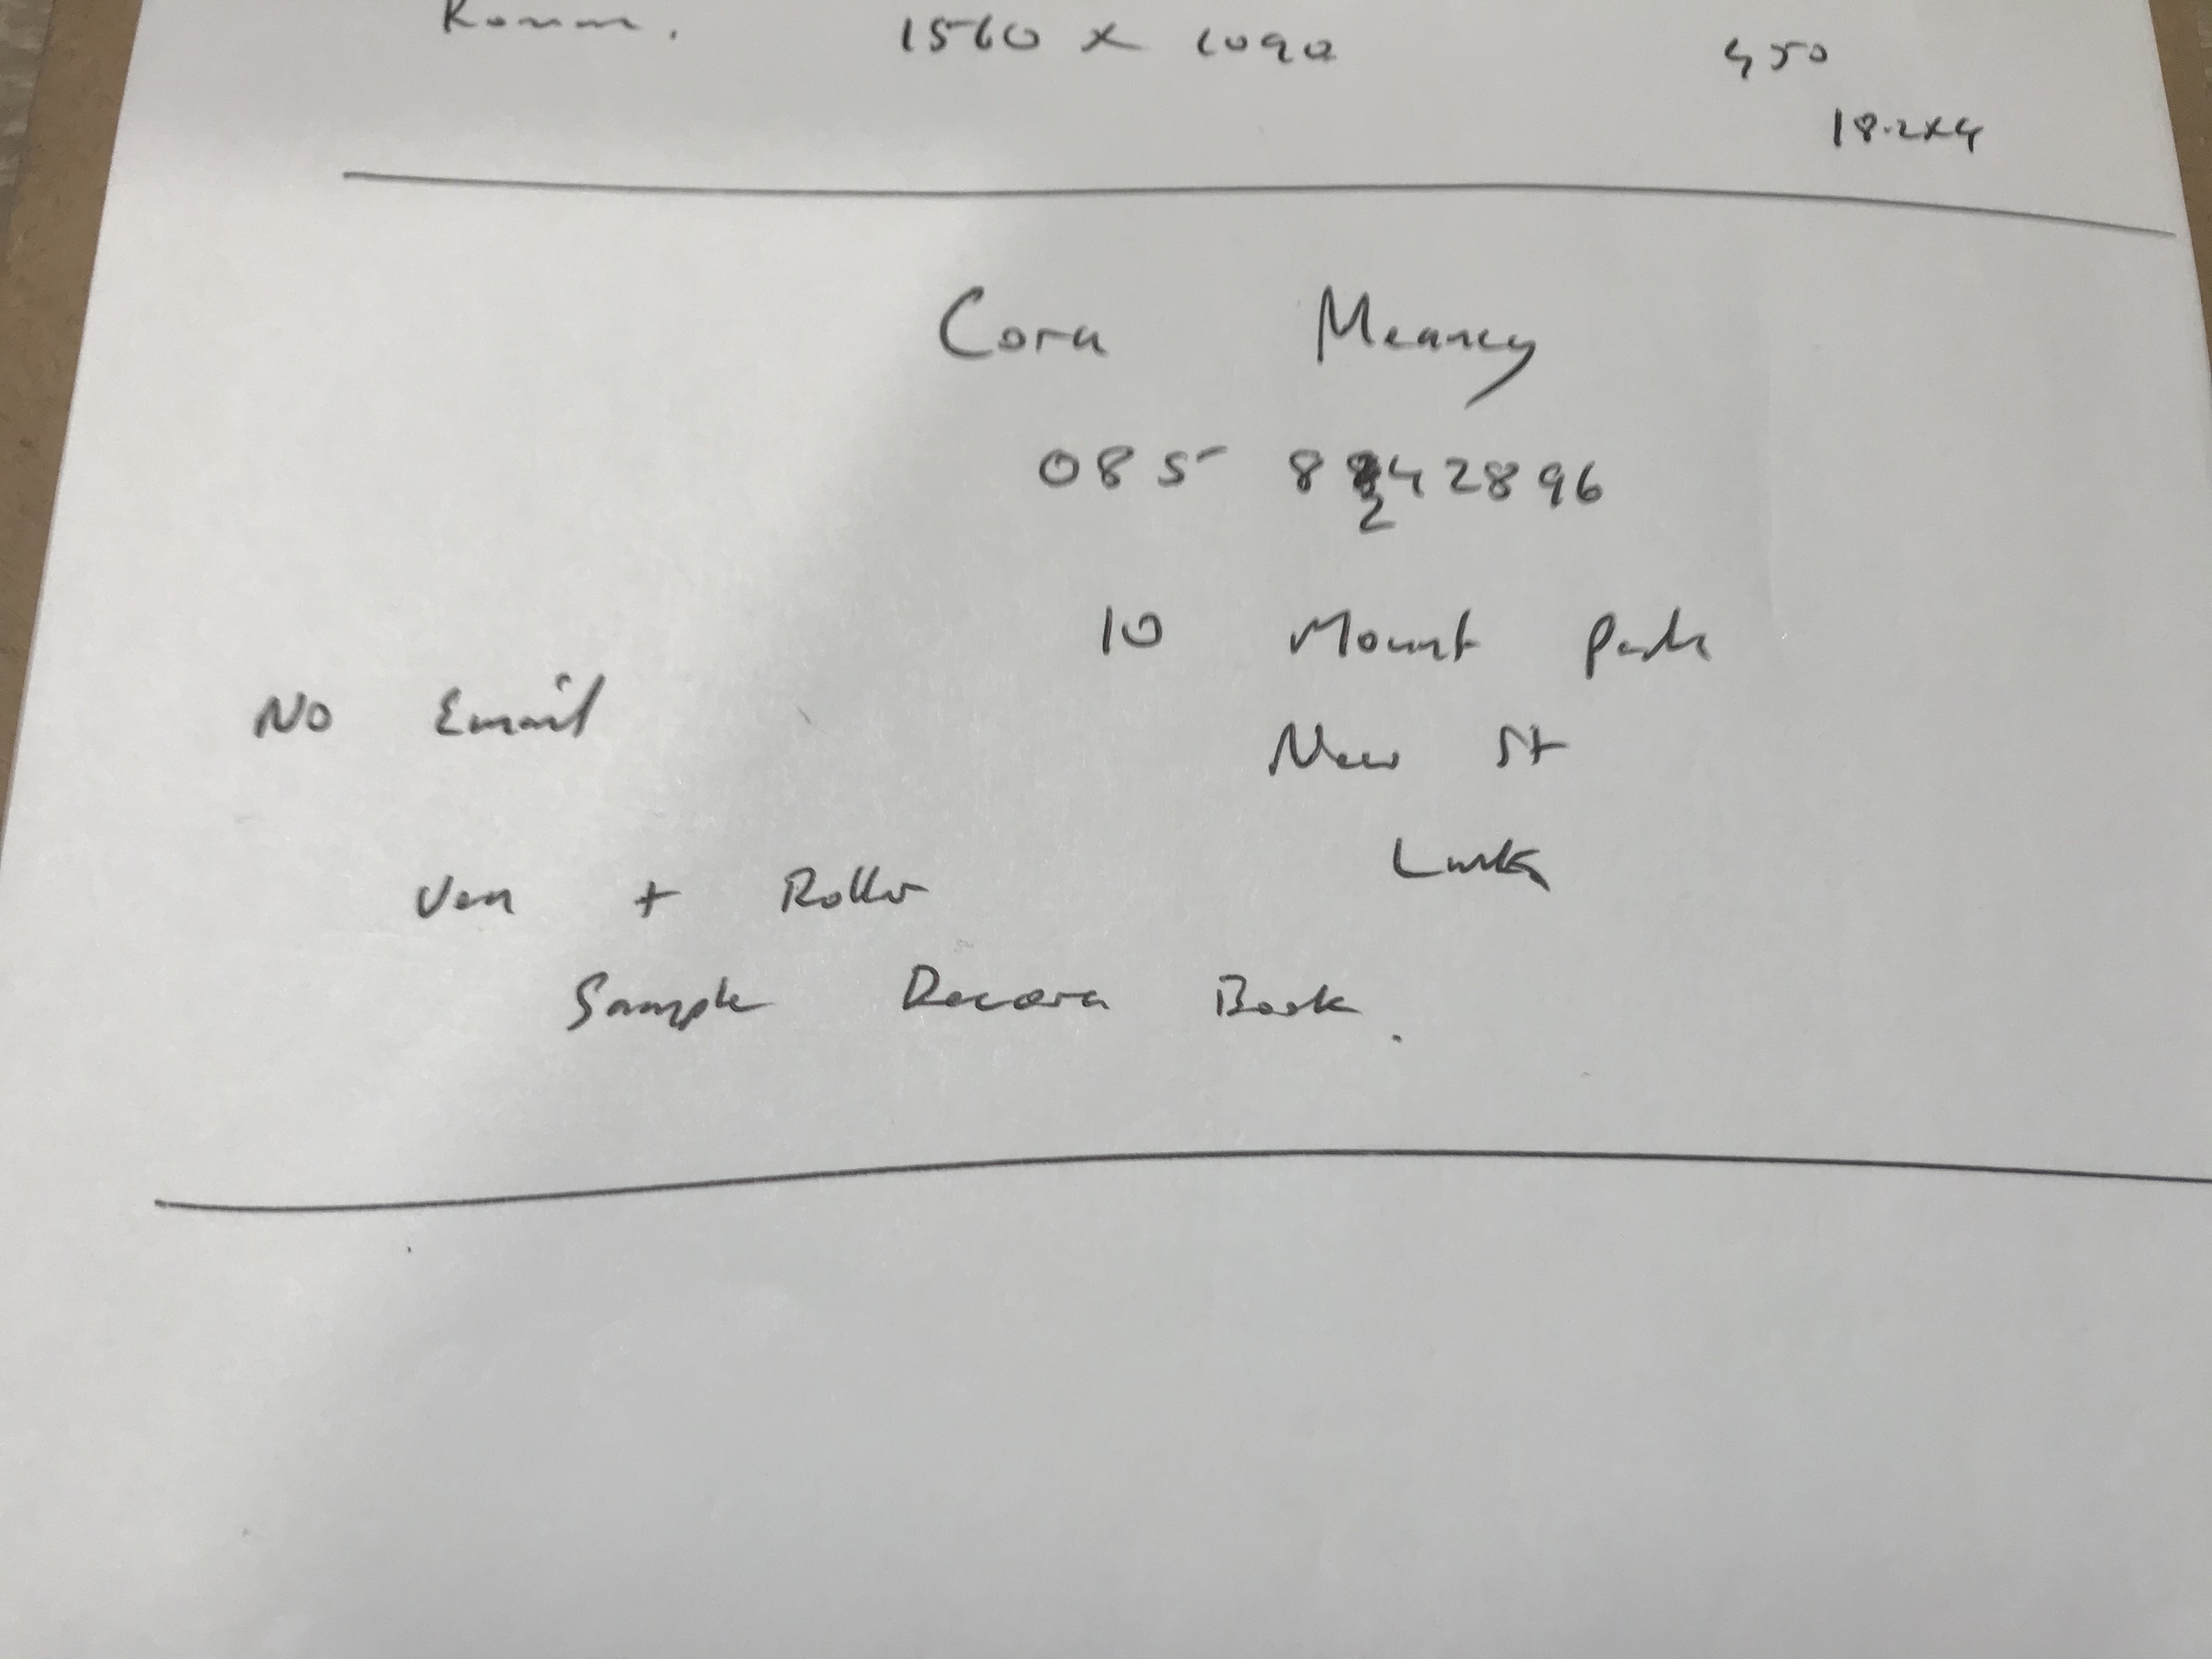 1560 x 1090 450
18.2x4
Cora Meaney
085 8242896
10 Mount Park
No Email
New St
Ven + Roller
Sample Decora Book.